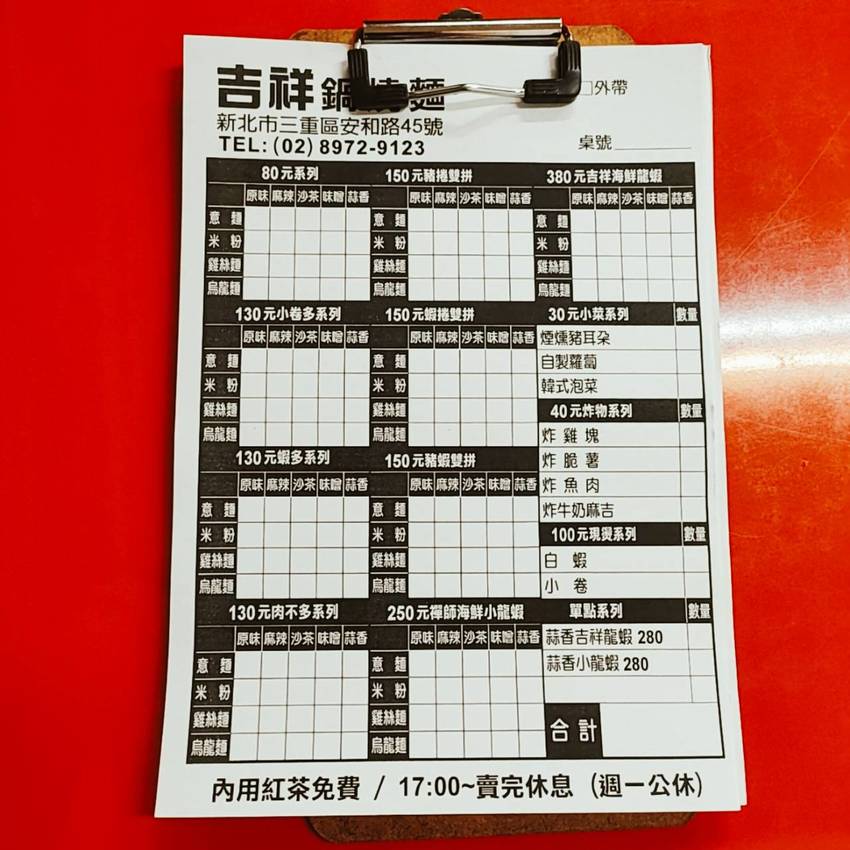 吉祥鍋燒麵
□外帶
新北市三重區安和路45號
TEL: (02) 8972-9123
桌號
80元系列
原味 麻辣 沙茶 味噌 蒜香
意麵
米粉
雞絲麵
烏龍麵
150元豬捲雙拼
原味 麻辣 沙茶 味噌 蒜香
意麵
米粉
雞絲麵
烏龍麵
380元吉祥海鮮龍蝦
原味 麻辣 沙茶 味噌 蒜香
意麵
米粉
雞絲麵
烏龍麵
130元小卷多系列
原味 麻辣 沙茶 味噌 蒜香
意麵
米粉
雞絲麵
烏龍麵
150元蝦捲雙拼
原味 麻辣 沙茶 味噌 蒜香
意麵
米粉
雞絲麵
烏龍麵
30元小菜系列 數量
煙燻豬耳朵
自製蘿蔔
韓式泡菜
40元炸物系列 數量
炸雞塊
炸脆薯
炸魚肉
炸牛奶麻吉
130元蝦多系列
原味 麻辣 沙茶 味噌 蒜香
意麵
米粉
雞絲麵
烏龍麵
150元豬蝦雙拼
原味 麻辣 沙茶 味噌 蒜香
意麵
米粉
雞絲麵
烏龍麵
100元現燙系列 數量
白蝦
小卷
130元肉不多系列
原味 麻辣 沙茶 味噌 蒜香
意麵
米粉
雞絲麵
烏龍麵
250元禪師海鮮小龍蝦
原味 麻辣 沙茶 味噌 蒜香
意麵
米粉
雞絲麵
烏龍麵
單點系列 數量
蒜香吉祥龍蝦 280
蒜香小龍蝦 280
合計
內用紅茶免費 / 17:00~賣完休息 (週一公休)